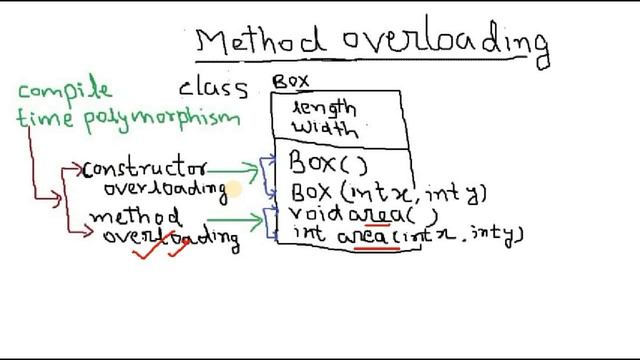 Method overloading
compile
time polymorphism
class BOX
length
width
constructor
overloading
BOX()
BOX (int x, int y)
method
overloading
void area()
int area(int x, int y)